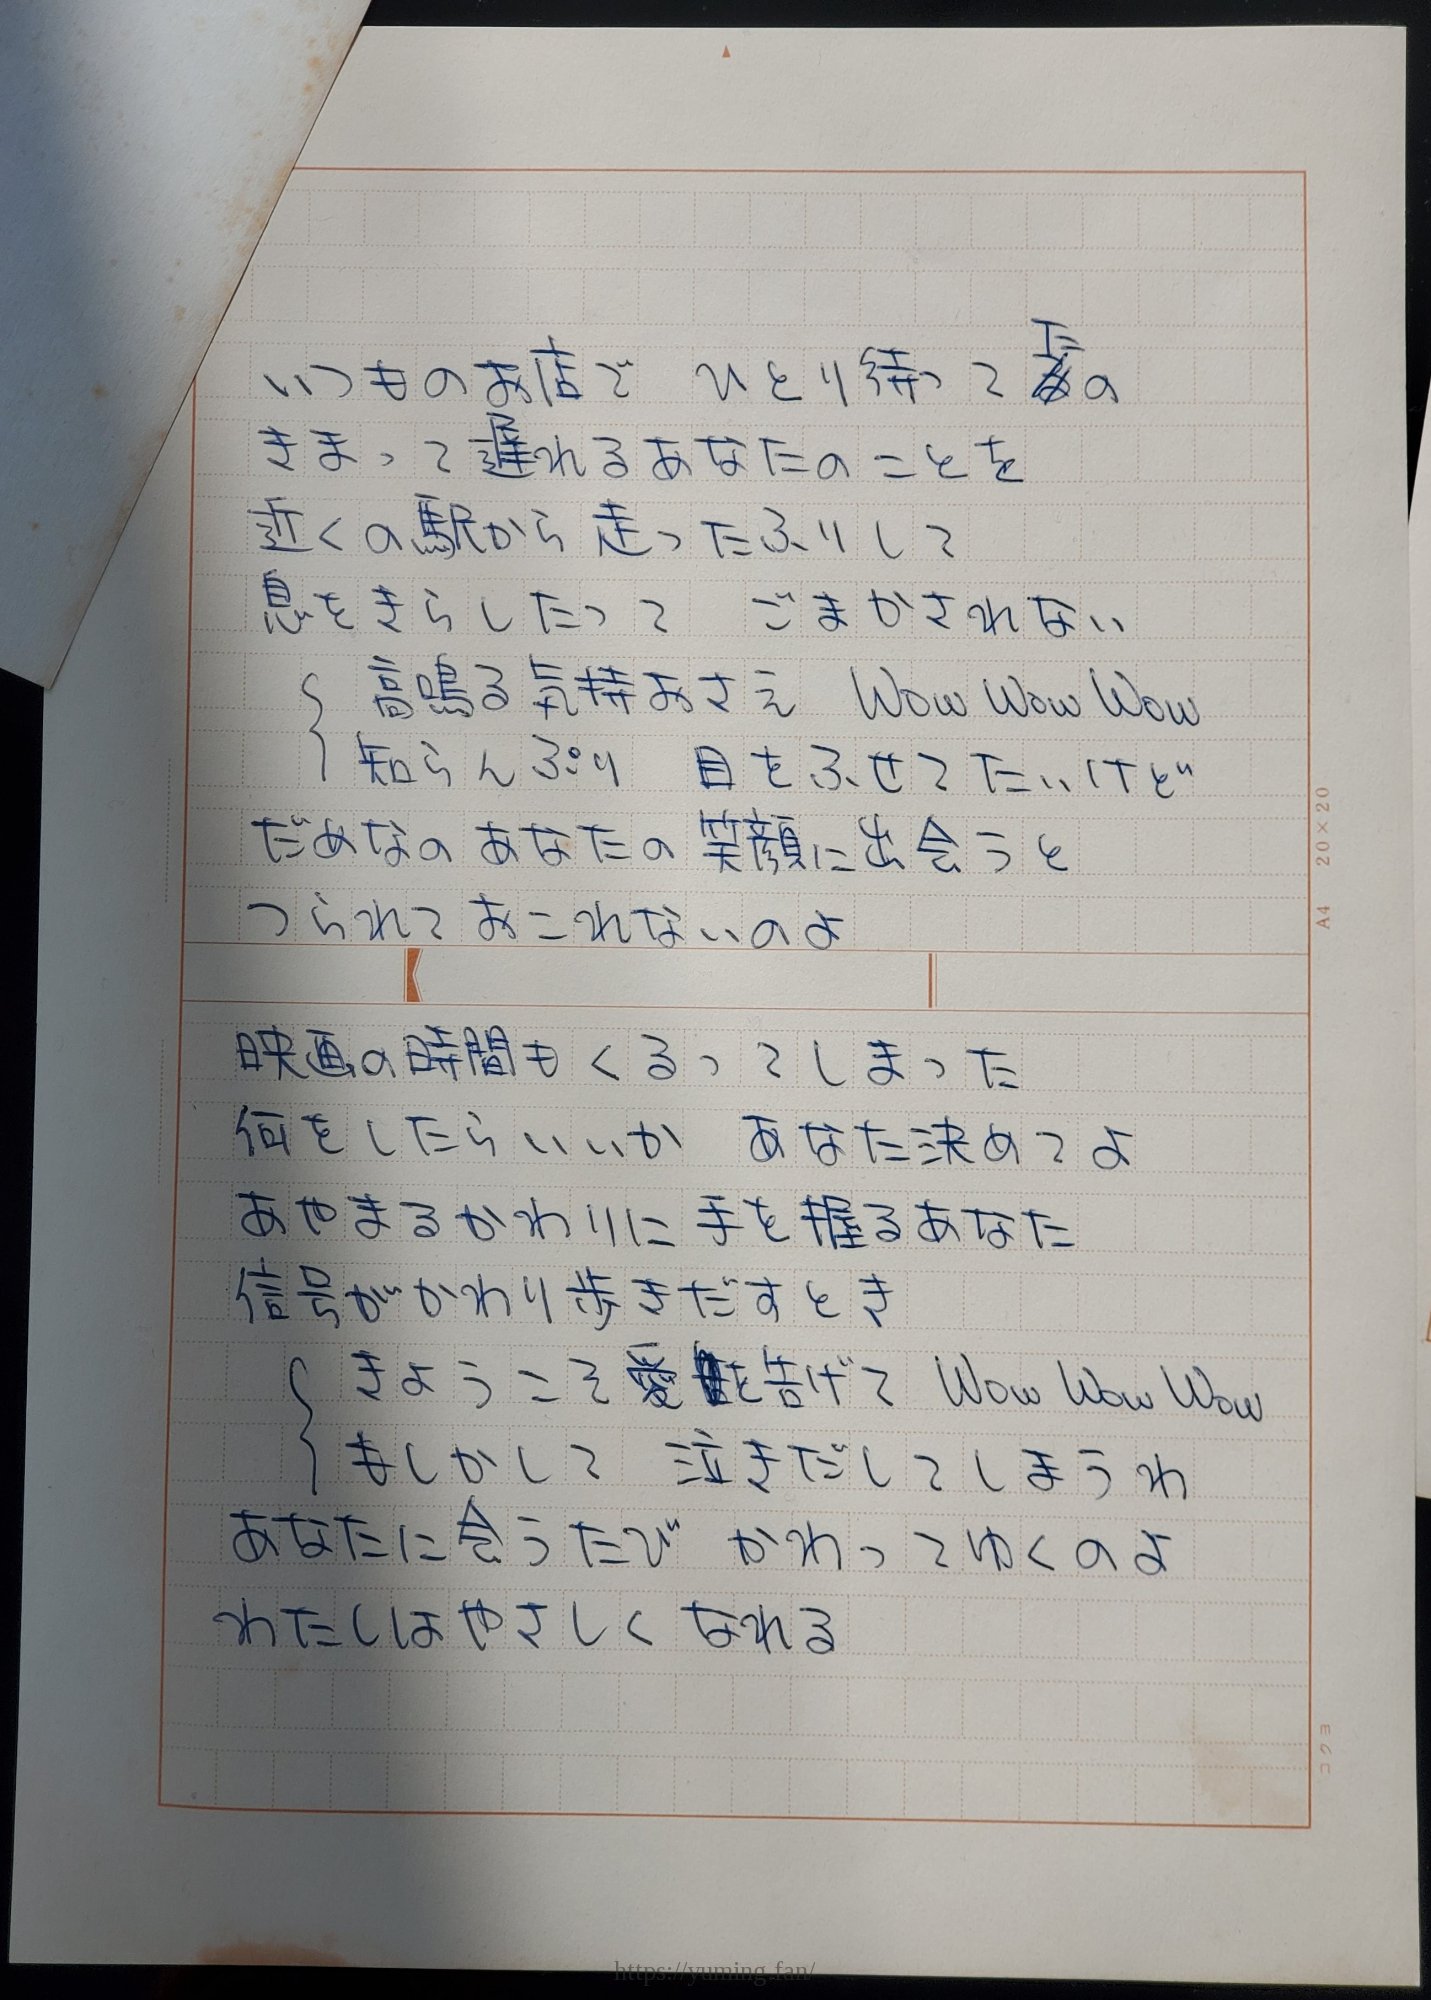 いつものお店で ひとり待ってたの
きまって遅れるあなたのことを
近くの駅から走ったふりして
息をきらしたって ごまかされない
高鳴る気持おさえ Wow Wow Wow
知らんぷり 目をふせてたいけど
だめなの あなたの笑顔に出会うと
つられておこれないのよ
映画の時間もくるってしまった
何をしたらいいか あなた決めてよ
あやまるかわりに 手を握るあなた
信号がかわり歩きだすとき
きょうこそ愛を告げて Wow Wow Wow
もしかして 泣きだしてしまうわ
あなたに会うたび かわってゆくのよ
わたしはやさしく なれる
A4 20×20
コクヨ
https://yuming.fan/